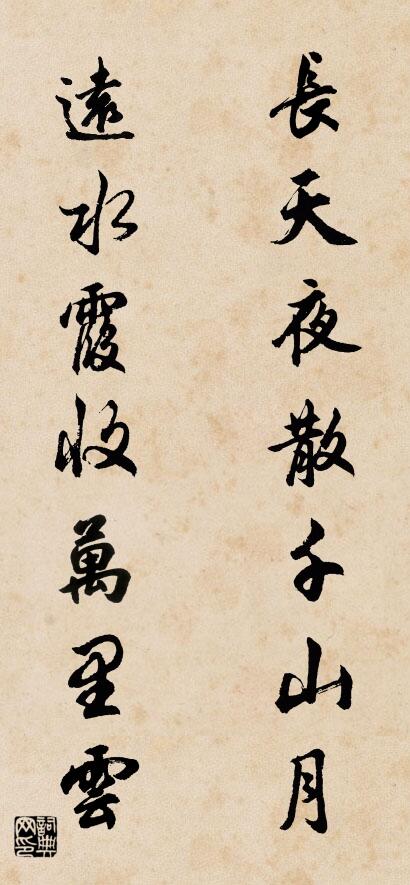 長天夜散千山月
遠水霞收萬里雲
詞典网印